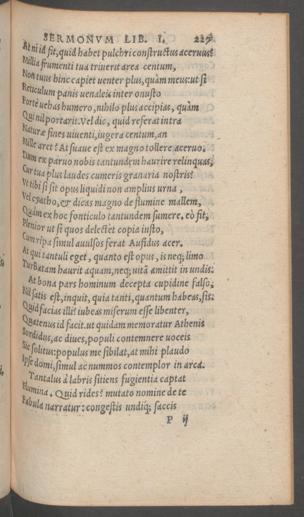 SERMONVM LIB. I. 229
At ni id fit, quid habet pulchri constructus aceruus?
Millia frumenti tua triuerit area centum,
Non tuus hinc capiet venter plus, quàm meus: ut si
Reticulum panis uenaleis inter onusto
Forte uehas humero, nihilo plus accipias, quàm
Qui nil portarit. Vel dic, quid referat intra
Naturæ fines uiuenti, iugera centum, an
Mille aret? At suaue est ex magno tollere aceruo.
Dum ex paruo nobis tantundem haurire relinquas,
Cur tua plus laudes cumeris granaria nostris?
Vt tibi si sit opus liquidi non amplius urna,
Vel cyatho, & dicas magno de flumine mallem,
Quàm ex hoc fonticulo tantundem sumere, eò fit,
Plenior ut si quos delectet copia iusto,
Cum ripa simul auulsos ferat Aufidus acer.
At qui tantuli eget, quanto est opus, is neq; limo
Turbatam haurit aquam, neq; uitã amittit in undis.
At bona pars hominum decepta cupidine falso,
Nil satis est, inquit, quia tanti, quantum habeas, sis:
Quid facias illi? iubeas miserum esse libenter,
Quatenus id facit. ut quidam memoratur Athenis
Sordidus, ac diues, populi contemnere uoceis
Sic solitus: populus me sibilat, at mihi plaudo
Ipse domi, simul ac nummos contemplor in arca.
Tantalus à labris sitiens fugientia captat
Flumina. Quid rides? mutato nomine de te
Fabula narratur: congestis undiq; saccis
P ij